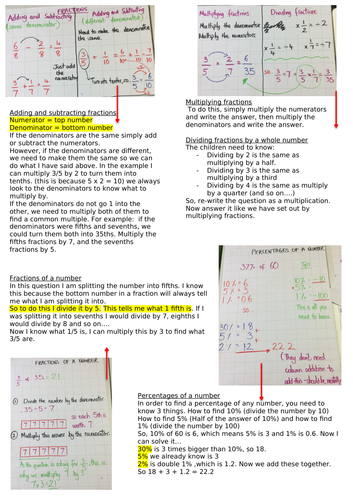 FRACTIONS
Adding and Subtracting
(same denominator)
Adding and Subtracting
(different denominator)
Need to make the denominator
the same.
Just add
the
numerators
Turn into tenths,
Multiplying fractions
Multiply the denominators
Multiply the numerators
Dividing fractions
Adding and subtracting fractions
Numerator = top number
Denominator = bottom number
If the denominators are the same simply add
or subtract the numerators.
However, if the denominators are different,
we need to make them the same so we can
do what I have said above. In the example I
can multiply 3/5 by 2 to turn them into
tenths. (this is because 5 x 2 = 10) we always
look to the denominators to know what to
multiply by.
If the denominators do not go 1 into the
other, we need to multiply both of them to
find a common multiple. For example:  if the
denominators were fifths and sevenths, we
could turn them both into 35ths. Multiply the
fifths fractions by 7, and the sevenths
fractions by 5.
Multiplying fractions
To do this, simply multiply the numerators
and write the answer, then multiply the
denominators and write the answer.
Dividing fractions by a whole number
The children need to know:
- Dividing by 2 is the same as
multiplying by a half.
- Dividing by 3 is the same as
multiplying by a third
- Dividing by 4 is the same as multiply
by a quarter (and so on....)
So, re-write the question as a multiplication.
Now answer it like we have set out by
multiplying fractions.
Fractions of a number
In this question I am splitting the number into fifths. I know
this because the bottom number in a fraction will always tell
me what I am splitting it into.
So to do this I divide it by 5. This tells me what 1 fifth is. If I
was splitting it into sevenths I would divide by 7, eighths I
would divide by 8 and so on....
Now I know what 1/5 is, I can multiply this by 3 to find what
3/5 are.
PERCENTAGES OF A NUMBER
37% of 60
10% = 6
5% = 3
1% = 0.6
30% = 18
5% = 3
2% = 1.2
22.2
(They don't need
column addition to
add this - should be mental)
FRACTIONS OF A NUMBER
3/5 of 35 = 21
① Divide the number by the denominator.
35÷5=7
so each 5th is
worth 7
7 7 7 7 7
② Multiply this answer by the numerator.
7 7 7 7 7
7x3=21
Percentages of a number
In order to find a percentage of any number, you need to
know 3 things. How to find 10% (divide the number by 10)
How to find 5% (Half of the answer of 10%) and how to find
1% (divide the number by 100)
So, 10% of 60 is 6, which means 5% is 3 and 1% is 0.6. Now I
can solve it...
30% is 3 times bigger than 10%, so 18.
5% we already know is 3
2% is double 1% ,which is 1.2. Now we add these together.
So 18 + 3 + 1.2 = 22.2